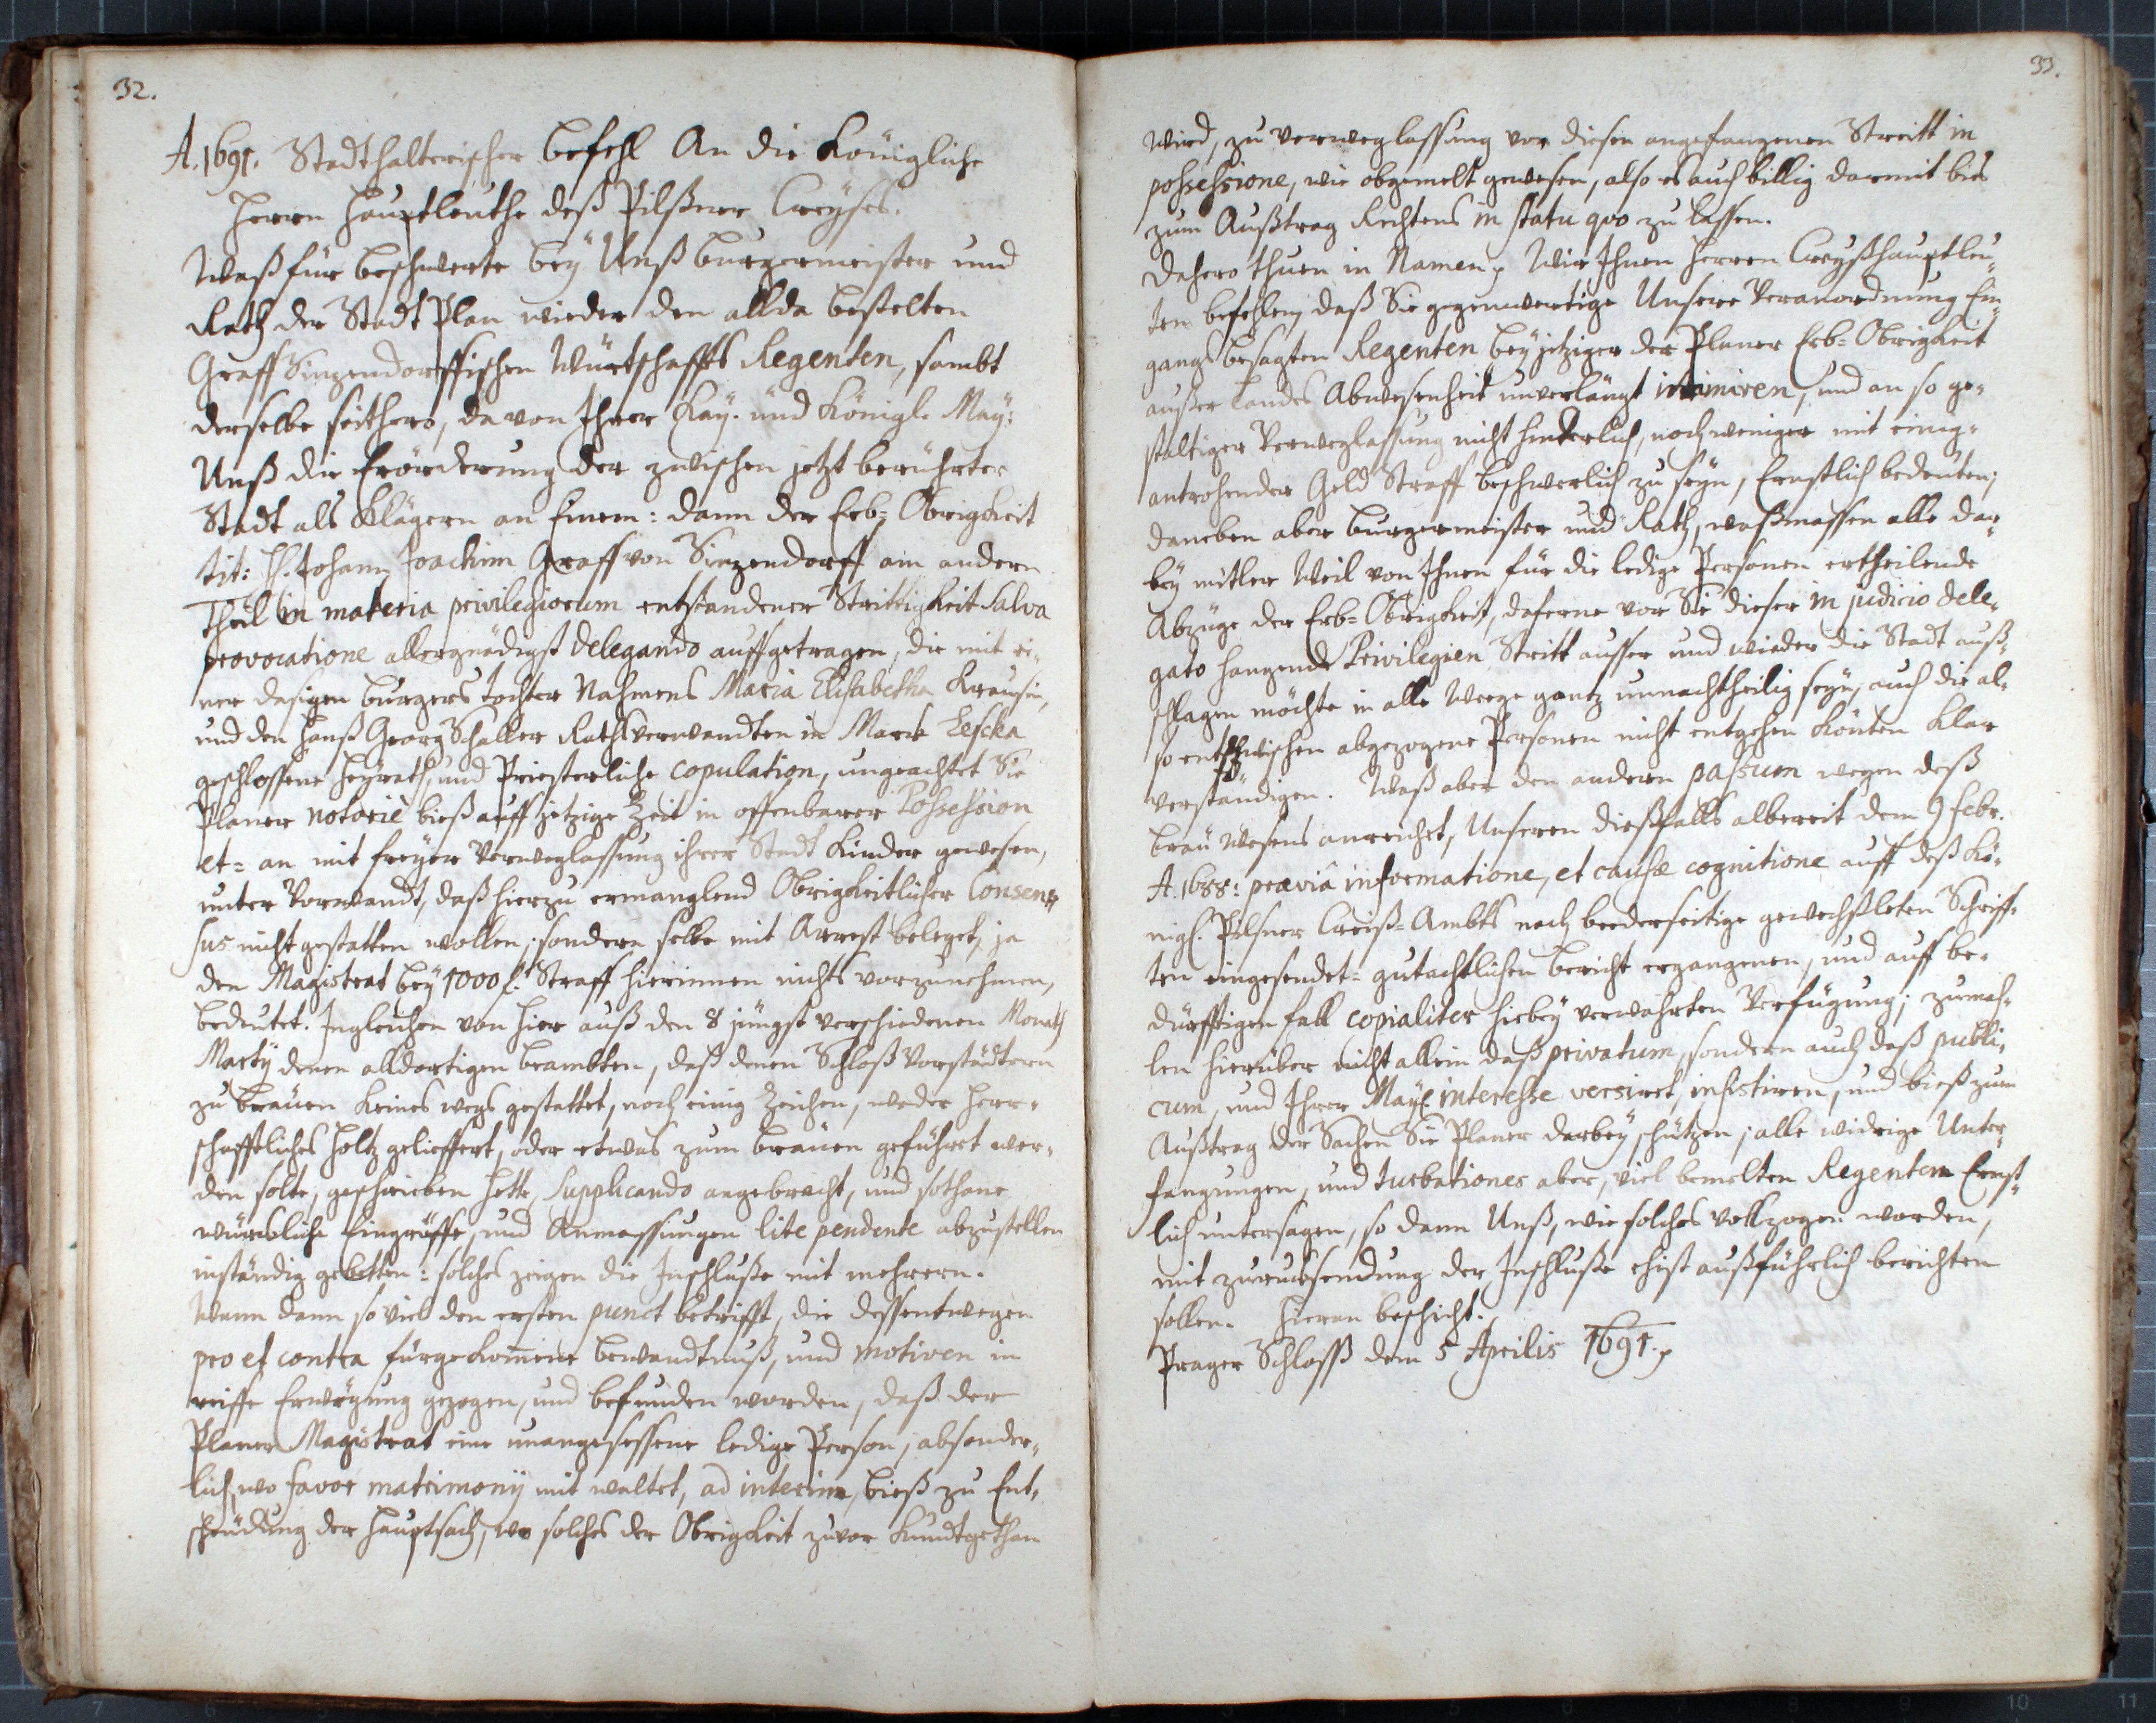 32.
A. 1691. Stadthalterischer Befehl An die Königliche
Herrn Hauptleuthe deß Pilßner Creyses.
Waß für beschwerte bey Unß Burgermeister und
Rath der Stadt Plan wieder den allda bestelten
Graff Sinzendorffischen Würtschaffts Regenten, sambt
derselbe seithero, da von Ihrer Kay. und Königl. May:
Unß die Erörderung der zwischen jetzt berührter
Stadt als Klägern an Einem: dann der Erb-Obrigkeit
tit: H. Johann Joachim Graff von Sinzendorff am andern
Theil in materia privilegiorum entstandener Strittigkeit salva
provocatione allergnädigst delegando auffgetragen, die mit ei-
ner dasigen burgers tochter Nahmens Maria Elisabetha Krausin,
und den Hanß Georg Schaller Rathsverwandten in Marck Lescka
geschlossene Heyrath, und Priesterliche copulation, ungeachtet Sie
Planer notoriè bieß auff jetzige Zeit in offenbarer Possession
et- an mit freyer Verweglassung ihrer Stadt Kinder gewesen,
unter Vorwandt, daß hierzu ermanglend Obrigkeitlicher Consen-
sus nicht gestatten wollen, sondern selbe mit Arrest beleget, ja
den Magistrat bey 1000 f. Straff hierinnen nichts vorzunehmen,
bedeutet. Ingleichen von hier auß den 8 jüngst verschiedenen Monath
Marty denen alldortigen beambten, daß denen Schloß Vorstädtern
zu bräuen keines wegs gestattet, noch einig Zeichen, weder Herr-
schafftliches Holtz gelieffert, oder etwas zum bräuen geführet wer-
den solte, geschrieben hette, Supplicando angebracht, und sothane
würckliche Eingröffe, und Anmassungen lite pendente abzustellen
inständig gebetten: solches zeigen die Inschlüße mit mehrern.
Wann dann so viel den ersten punct betrifft, die dessentwegen
pro et contra fürgekom̃ene bewandtnuß, und motiven in
reiffe Erwögung gezogen, und befunden worden, daß der
Planer Magistrat eine unangesessene ledige Person, absonder-
lich, wo favor matrimonÿ mit waltet, ad interim, bieß zu Ent-
scheüdung der Hauptsach, wo solches der Obrigkeit zuvor kundtgethan
33.
wird, zu verweglassung vor diesen angefangenen Streitt in
possessione, wie obgemelt gewesen, also es auch billig darmit bies
zum Außtrag Rechtens in statu quo zu lassen.
Dahero thuen in Namen p Wir Ihnen Herren Creyßhauptleu-
ten befehlen, daß Sie gegenwertige Unsere Veranordnung Ein-
gangs besagten Regenten bey jetziger der Planer Erb-Obrigkeit
außer Landes Abwesenheit unverlängt intimiren, und an so ge-
staltiger Verweglassung nicht hinderlich, noch weniger mit einig-
antrohender Geld Straff beschwerlich zu seyn, Ernstlich bedeuten;
daneben aber Burgermeister und Rath, waßmassen alle dar-
bey mitler Weil von Ihnen für die ledige Personen ertheilende
Abzüge der Erb-Obrigkeit, daferne vor Sie dieser in judicio dele-
gato hangende Privilegien Stritt ausser und wieder die Stadt auß-
schlagen möchte in alle Weege gantz unnachtheilig seyn, auch die al-
so entzwischen abgezogene Personen nicht entgehen könten klar
verständigen. Waß aber den andern passum wegen deß
Bräuwesens anreichet, Unseren dießfalls albereit dem 9 Febr.
A. 1688: præviâ informatione, et causæ cognitione auff deß Kö-
nigl. Pilsner Creiß-Ambts nach beederseitige gewechßleten Schriff-
ten eingesendet- gutachtlichen bericht ergangenen, und auff be-
dürfftigen fall copialiter hiebey verwahrten Verfügung; zumah-
len hierüber nicht allein daß privatum, sondern auch daß publi-
cum, und Ihrer May: interesse versiret, insistiren, und bieß zum
Außtrag der Sachen Sie Planer darbey schützen; alle widrige Unter-
fangungen, und turbationes aber, viel bemelten Regenten Ernst-
lich untersagen, so dann Unß, wie solches vollzogen worden,
mit zurucksendung der Inschlüße ehist außführlich berichten
sollen. Hieran beschicht.
Prager Schlosß dem 5 Aprilis 1691. p